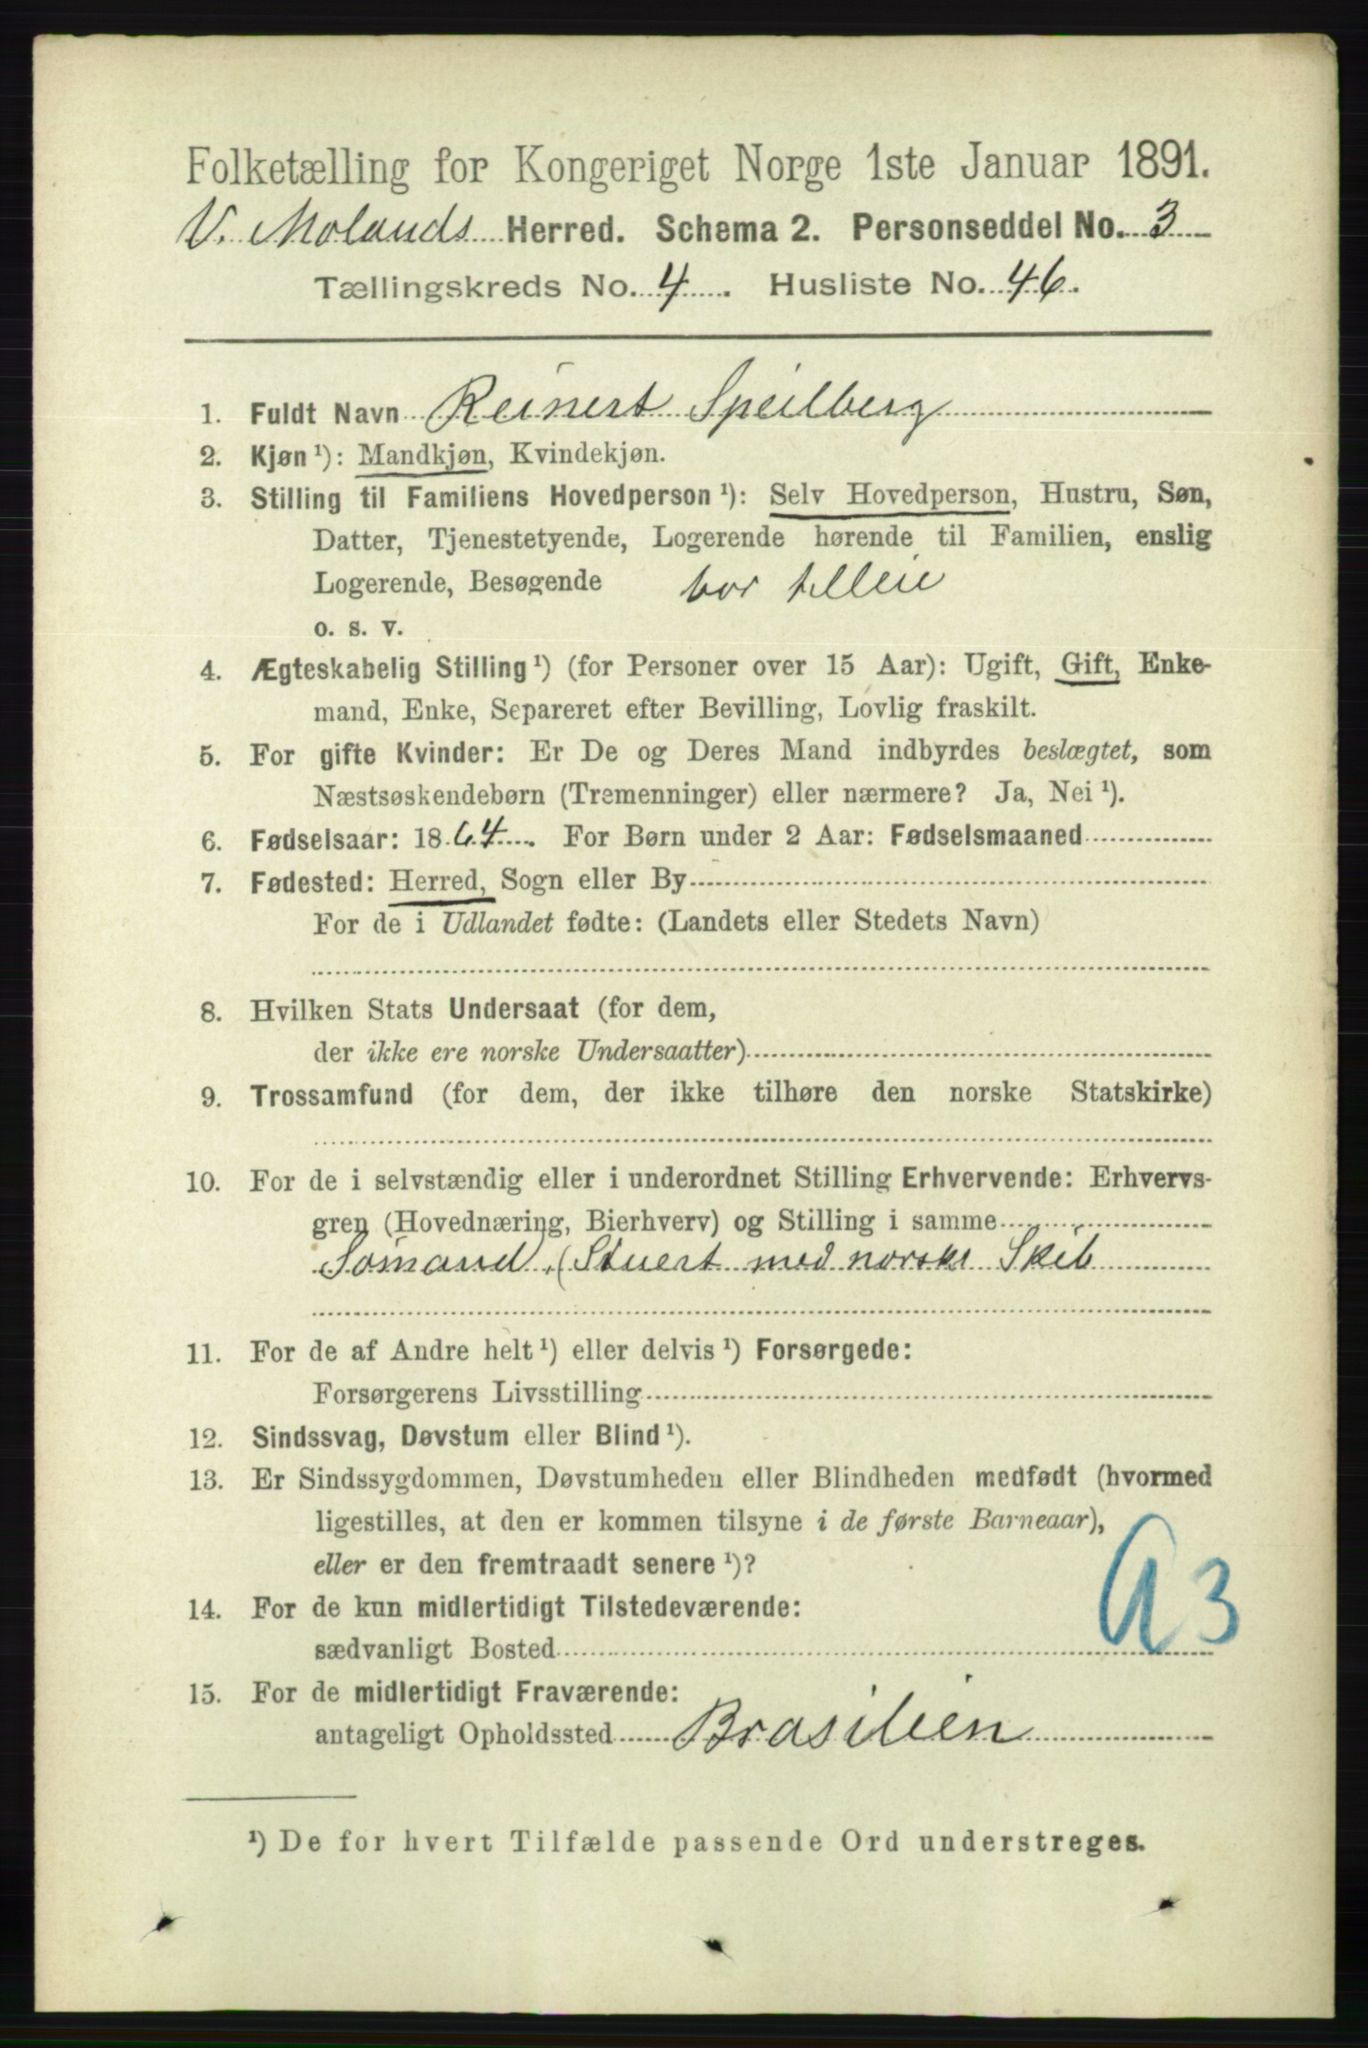 Folketælling for Kongeriget Norge 1ste Januar 1891.
V. Molands Herred. Schema 2. Personseddel No. 3
Tællingskreds No. 4. Husliste No. 46.
1. Fuldt Navn Reinert Speilberg
2. Kjøn ¹): Mandkjøn, Kvindekjøn.
3. Stilling til Familiens Hovedperson ¹): Selv Hovedperson, Hustru, Søn,
Datter, Tjenestetyende, Logerende hørende til Familien, enslig
Logerende, Besøgende bor tilleie
o. s. v.
4. Ægteskabelig Stilling ¹) (for Personer over 15 Aar): Ugift, Gift, Enke-
mand, Enke, Separeret efter Bevilling, Lovlig fraskilt.
5. For gifte Kvinder: Er De og Deres Mand indbyrdes beslægtet, som
Næstsøskendebørn (Tremenninger) eller nærmere? Ja, Nei ¹).
6. Fødselsaar: 1864. For Børn under 2 Aar: Fødselsmaaned
7. Fødested: Herred, Sogn eller By
For de i Udlandet fødte: (Landets eller Stedets Navn)
8. Hvilken Stats Undersaat (for dem,
der ikke ere norske Undersaatter)
9. Trossamfund (for dem, der ikke tilhøre den norske Statskirke)
10. For de i selvstændig eller i underordnet Stilling Erhvervende: Erhvervs-
gren (Hovednæring, Bierhverv) og Stilling i samme
Sømand, (Stuert med norske Skib
11. For de af Andre helt ¹) eller delvis ¹) Forsørgede:
Forsørgerens Livsstilling
12. Sindssvag, Døvstum eller Blind ¹).
13. Er Sindssygdommen, Døvstumheden eller Blindheden medfødt (hvormed
ligestilles, at den er kommen tilsyne i de første Barneaar),
eller er den fremtraadt senere ¹)?
14. For de kun midlertidigt Tilstedeværende:
sædvanligt Bosted
A3
15. For de midlertidigt Fraværende:
antageligt Opholdssted Brasilien
¹) De for hvert Tilfælde passende Ord understreges.